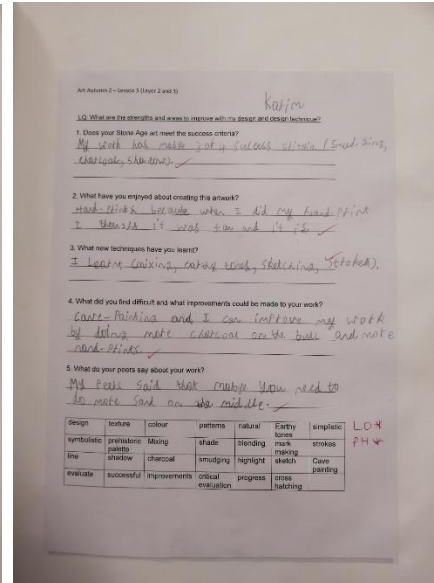 Art Autumn 2 – Lesson 5 (Layer 2 and 3)
LQ: What are the strengths and areas to improve with my design and design technique?
1. Does your Stone Age art meet the success criteria?
My work has 3 of 4
charcoal, shadows).
2. What have you enjoyed about creating this artwork?
Hand-Prints because when I did my hand-Print
I it was fun and it is.
3. What new techniques have you learnt?
I mixing, tones, sketching,
4. What did you find difficult and what improvements could be made to your work?
Cave-Painting and I can improve my work
by doing more charcoal on the and more
hand-Prints.
5. What do your peers say about your work?
My Peers said that maybe You need to
do more sand on the middle.
design texture colour patterns natural Earthy tones simplistic LO*
symbolistic prehistoric palette Mixing shade blending mark making strokes PH*
line shadow charcoal smudging highlight sketch Cave painting
evaluate successful improvements critical evaluation progress cross hatching